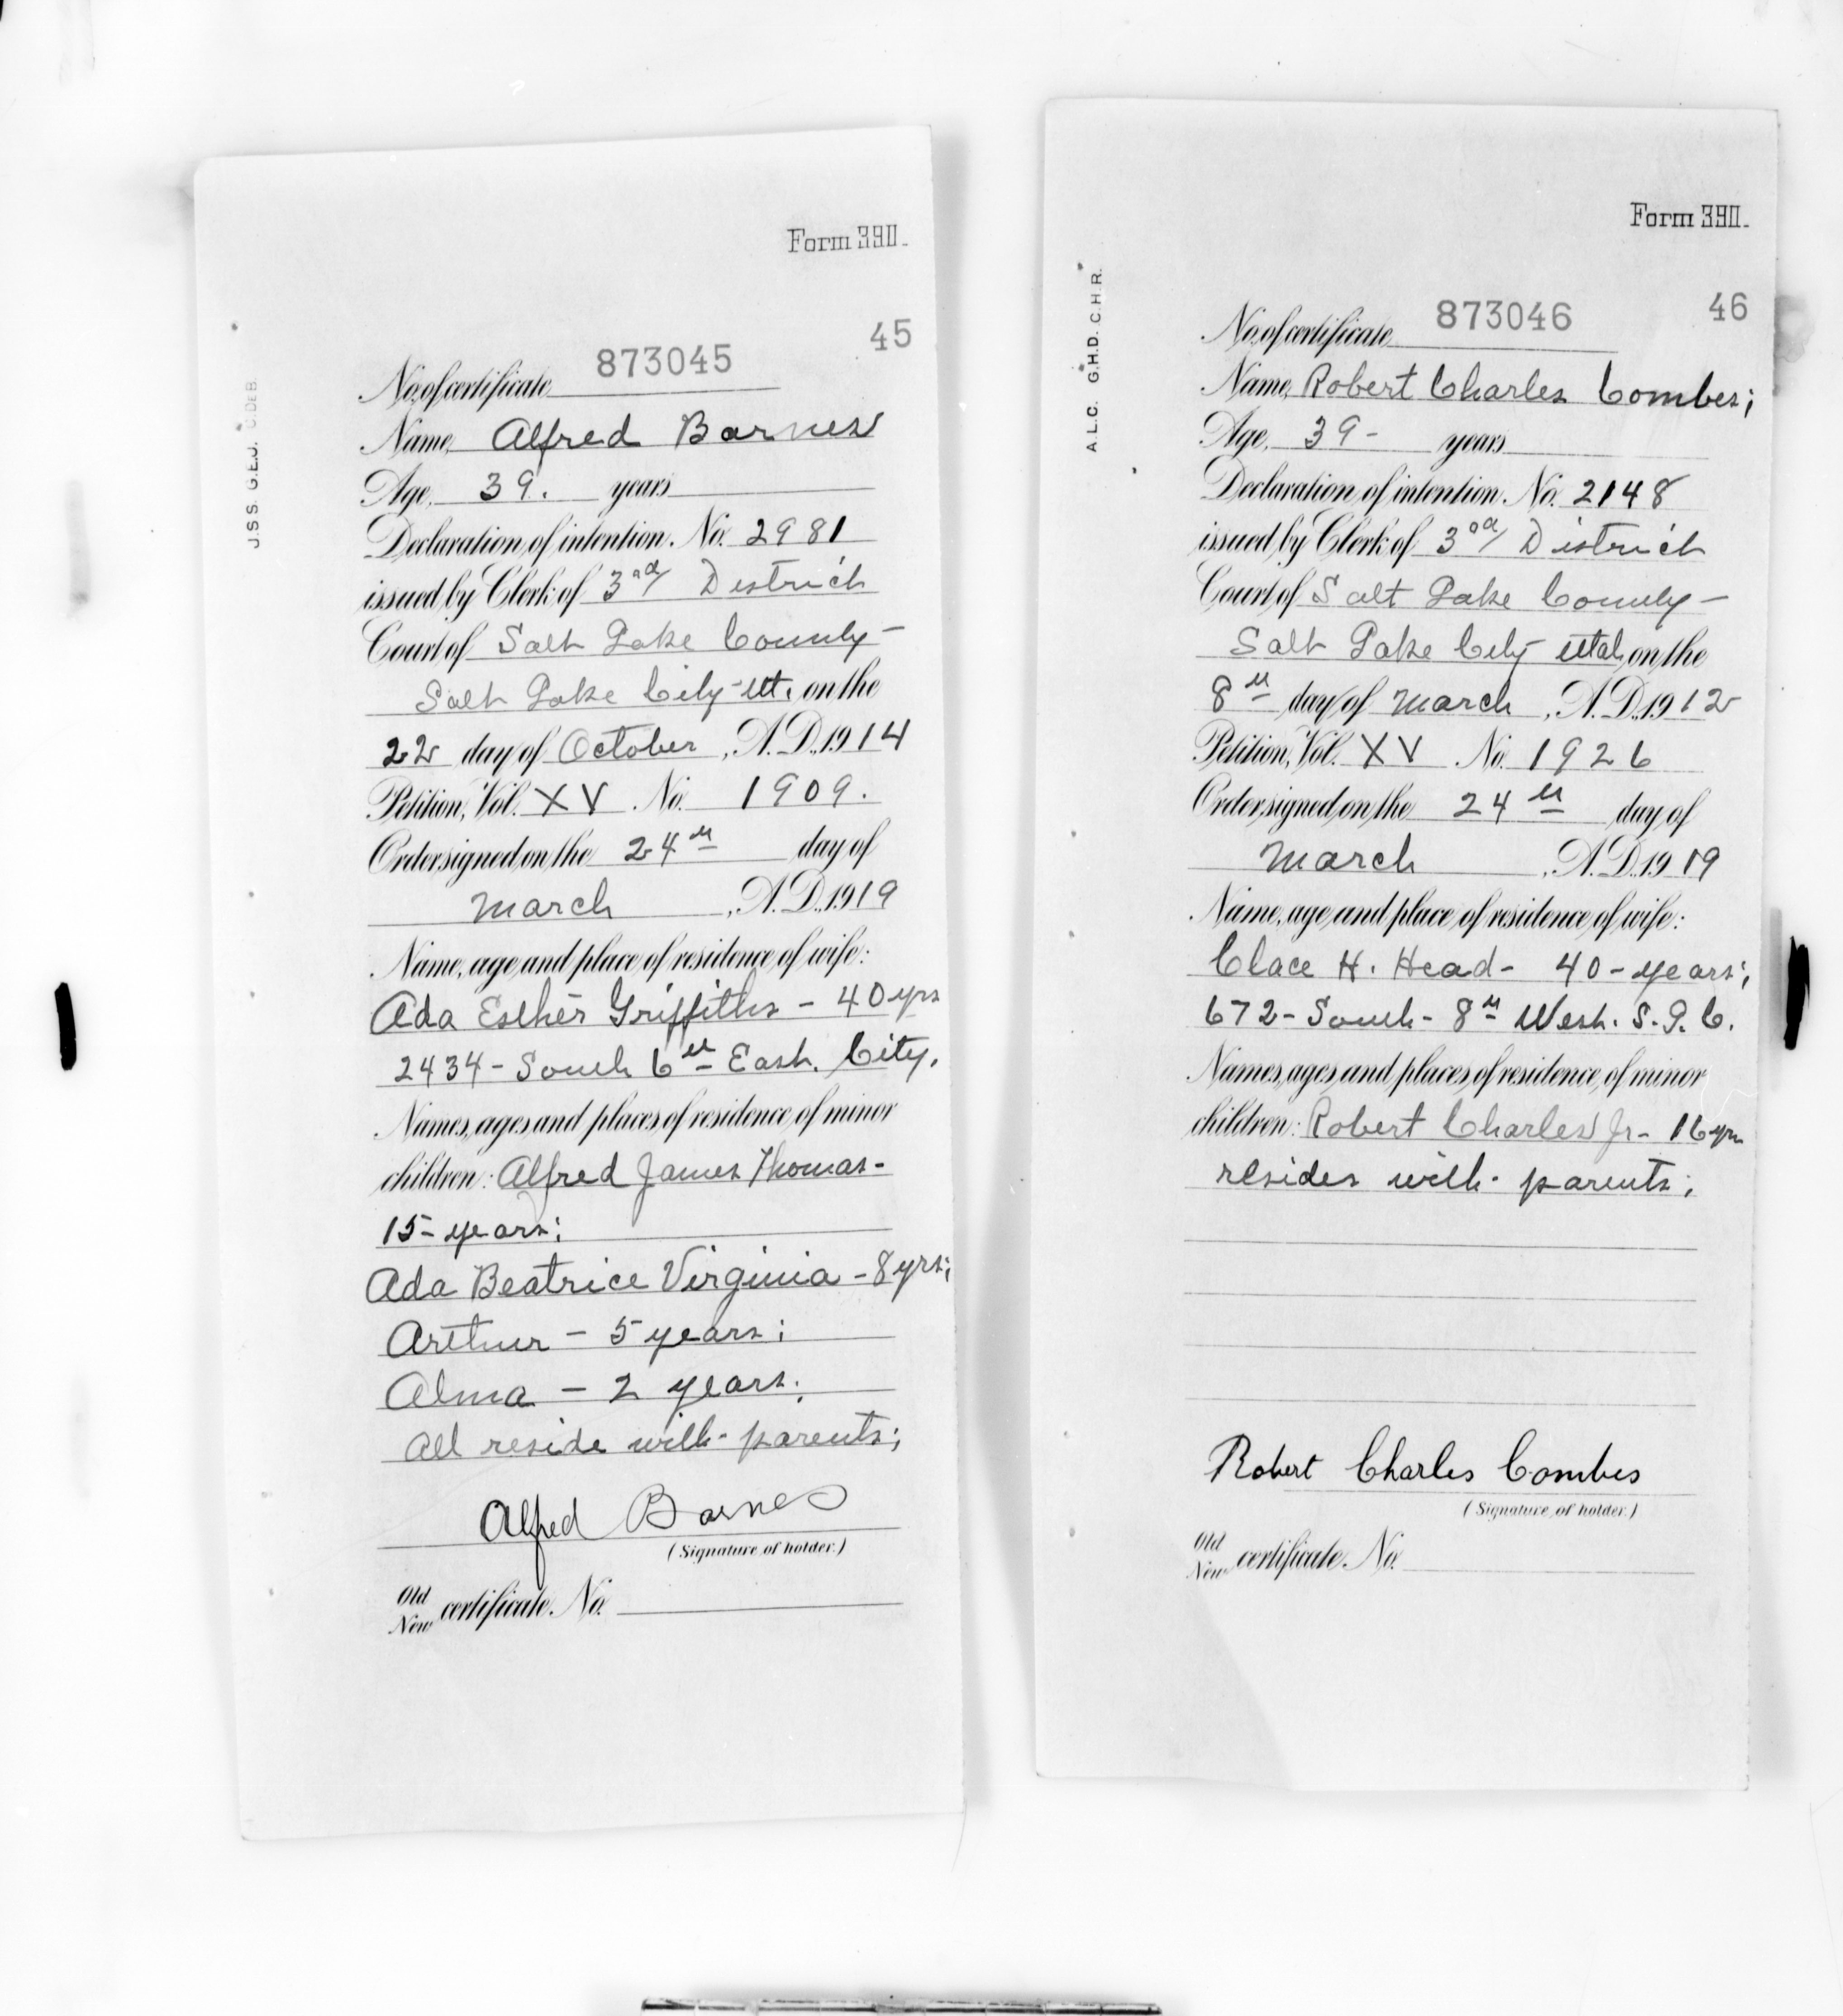 Form 390.
45
No. of certificate 873045
Name Alfred Barnes
Age 39. years
Declaration of intention. No. 2981
issued by Clerk of 3rd District
Court of Salt Lake County-
Salt Lake City-Ut. on the
22 day of October, A.D. 1914
Petition, Vol. XV No. 1909.
Order signed on the 24th day of
March, A.D. 1919
Name, age and place of residence of wife:
Ada Esther Griffiths - 40 yrs
2434 - South 6th East. City.
Names, ages and places of residence of minor
children: Alfred James Thomas -
15 - years;
Ada Beatrice Virginia - 8 yrs;
Arthur - 5 years;
Alma - 2 years;
All reside with parents;
Alfred Barnes
(Signature of holder.)
Old
New certificate. No.
J.S.S. G.E.J.
Form 390.
46
No. of certificate 873046
Name Robert Charles Combes;
Age. 39 - years
Declaration of intention. No. 2148
issued by Clerk of 3rd District
Court of Salt Lake County -
Salt Lake City Utah on the
8th day of March, A.D. 1912
Petition, Vol. XV No. 1926
Order signed on the 24th day of
March, A.D. 1919
Name, age and place of residence of wife:
H. Head - 40 - years;
672 - South - 8th West. S.L.C.
Names, ages and places of residence of minor
children: Robert Charles Jr - 16 yrs
resides with - parents;
Robert Charles Combes
(Signature of holder.)
Old
New certificate. No.
A.L.C. G.H.D. C.H.R.